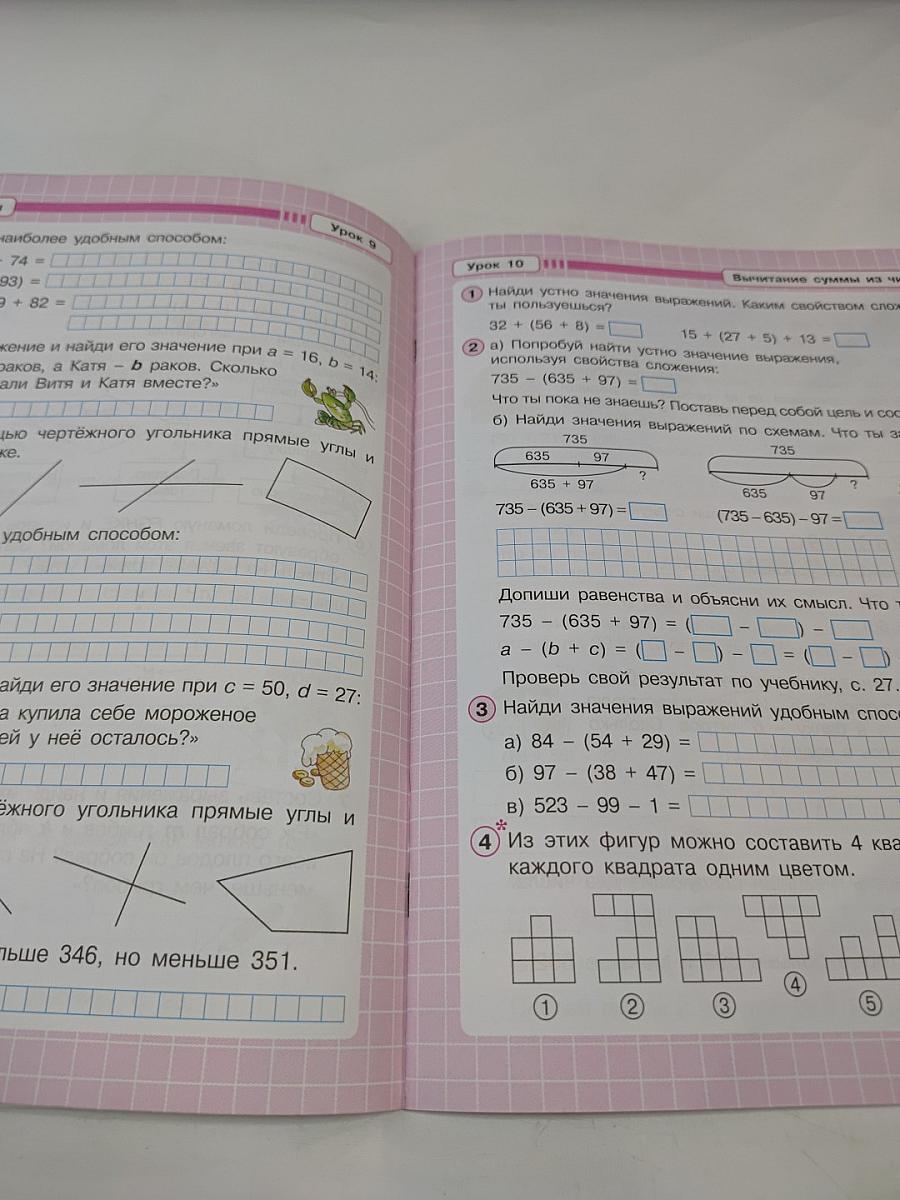 Урок 9
наиболее удобным способом:
74 =
93) =
9 + 82 =
жение и найди его значение при a = 16, b = 14:
раков, а Катя – b раков. Сколько
али Витя и Катя вместе?»
цью чертёжного угольника прямые углы и
же.
удобным способом:
айди его значение при c = 50, d = 27:
а купила себе мороженое
ей у неё осталось?»
ёжного угольника прямые углы и
льше 346, но меньше 351.
Урок 10
Вычитание суммы из чи
1 Найди устно значения выражений. Каким свойством слож
ты пользуешься?
32 + (56 + 8) = 15 + (27 + 5) + 13 =
2 а) Попробуй найти устно значение выражения,
используя свойства сложения:
735 – (635 + 97) =
Что ты пока не знаешь? Поставь перед собой цель и сос
б) Найди значения выражений по схемам. Что ты за
735 735
635 97 ?
635 + 97 635 97 ?
735 – (635 + 97) = (735 – 635) – 97 =
Допиши равенства и объясни их смысл. Что т
735 – (635 + 97) = ( – ) –
a – (b + c) = ( – ) – = ( – )
Проверь свой результат по учебнику, с. 27.
3 Найди значения выражений удобным спосо
а) 84 – (54 + 29) =
б) 97 – (38 + 47) =
в) 523 – 99 – 1 =
4* Из этих фигур можно составить 4 ква
каждого квадрата одним цветом.
1 2 3 4 5